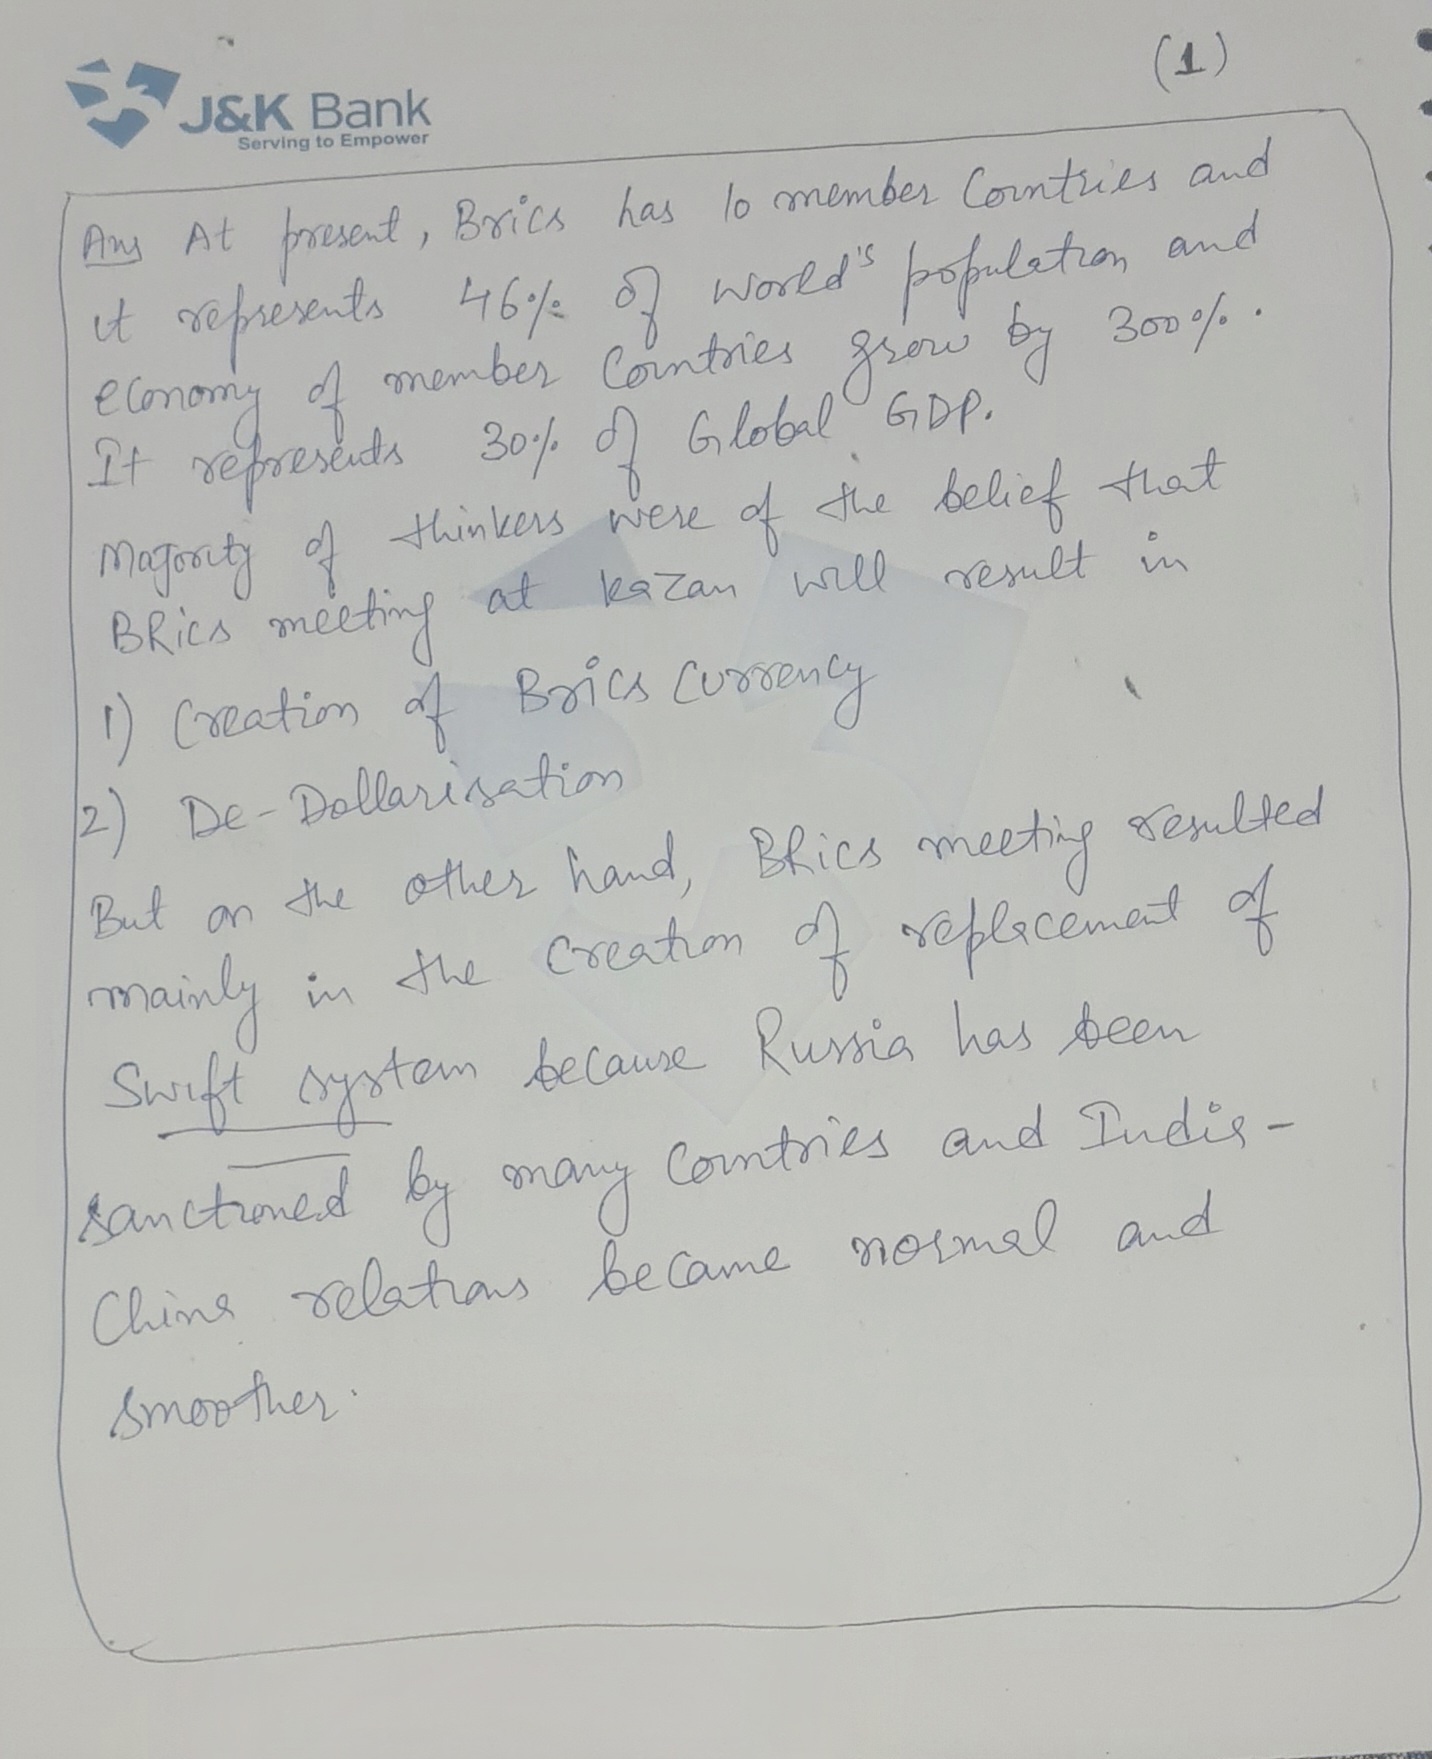 (1)
J&K Bank
Serving to Empower
Ans At present, Brics has 10 member Countries and
it represents 46% of world's population and
economy of member Countries grow by 300%.
It represents 30% of Global GDP.
Majority of thinkers were of the belief that
BRics meeting at kazan will result in
1) Creation of Brics Currency
2) De-Dollarisation
But on the other hand, BRics meeting resulted
mainly in the creation of replacement of
Swift system because Russia has been
sanctioned by many Countries and India-
China relations became normal and
smoother.